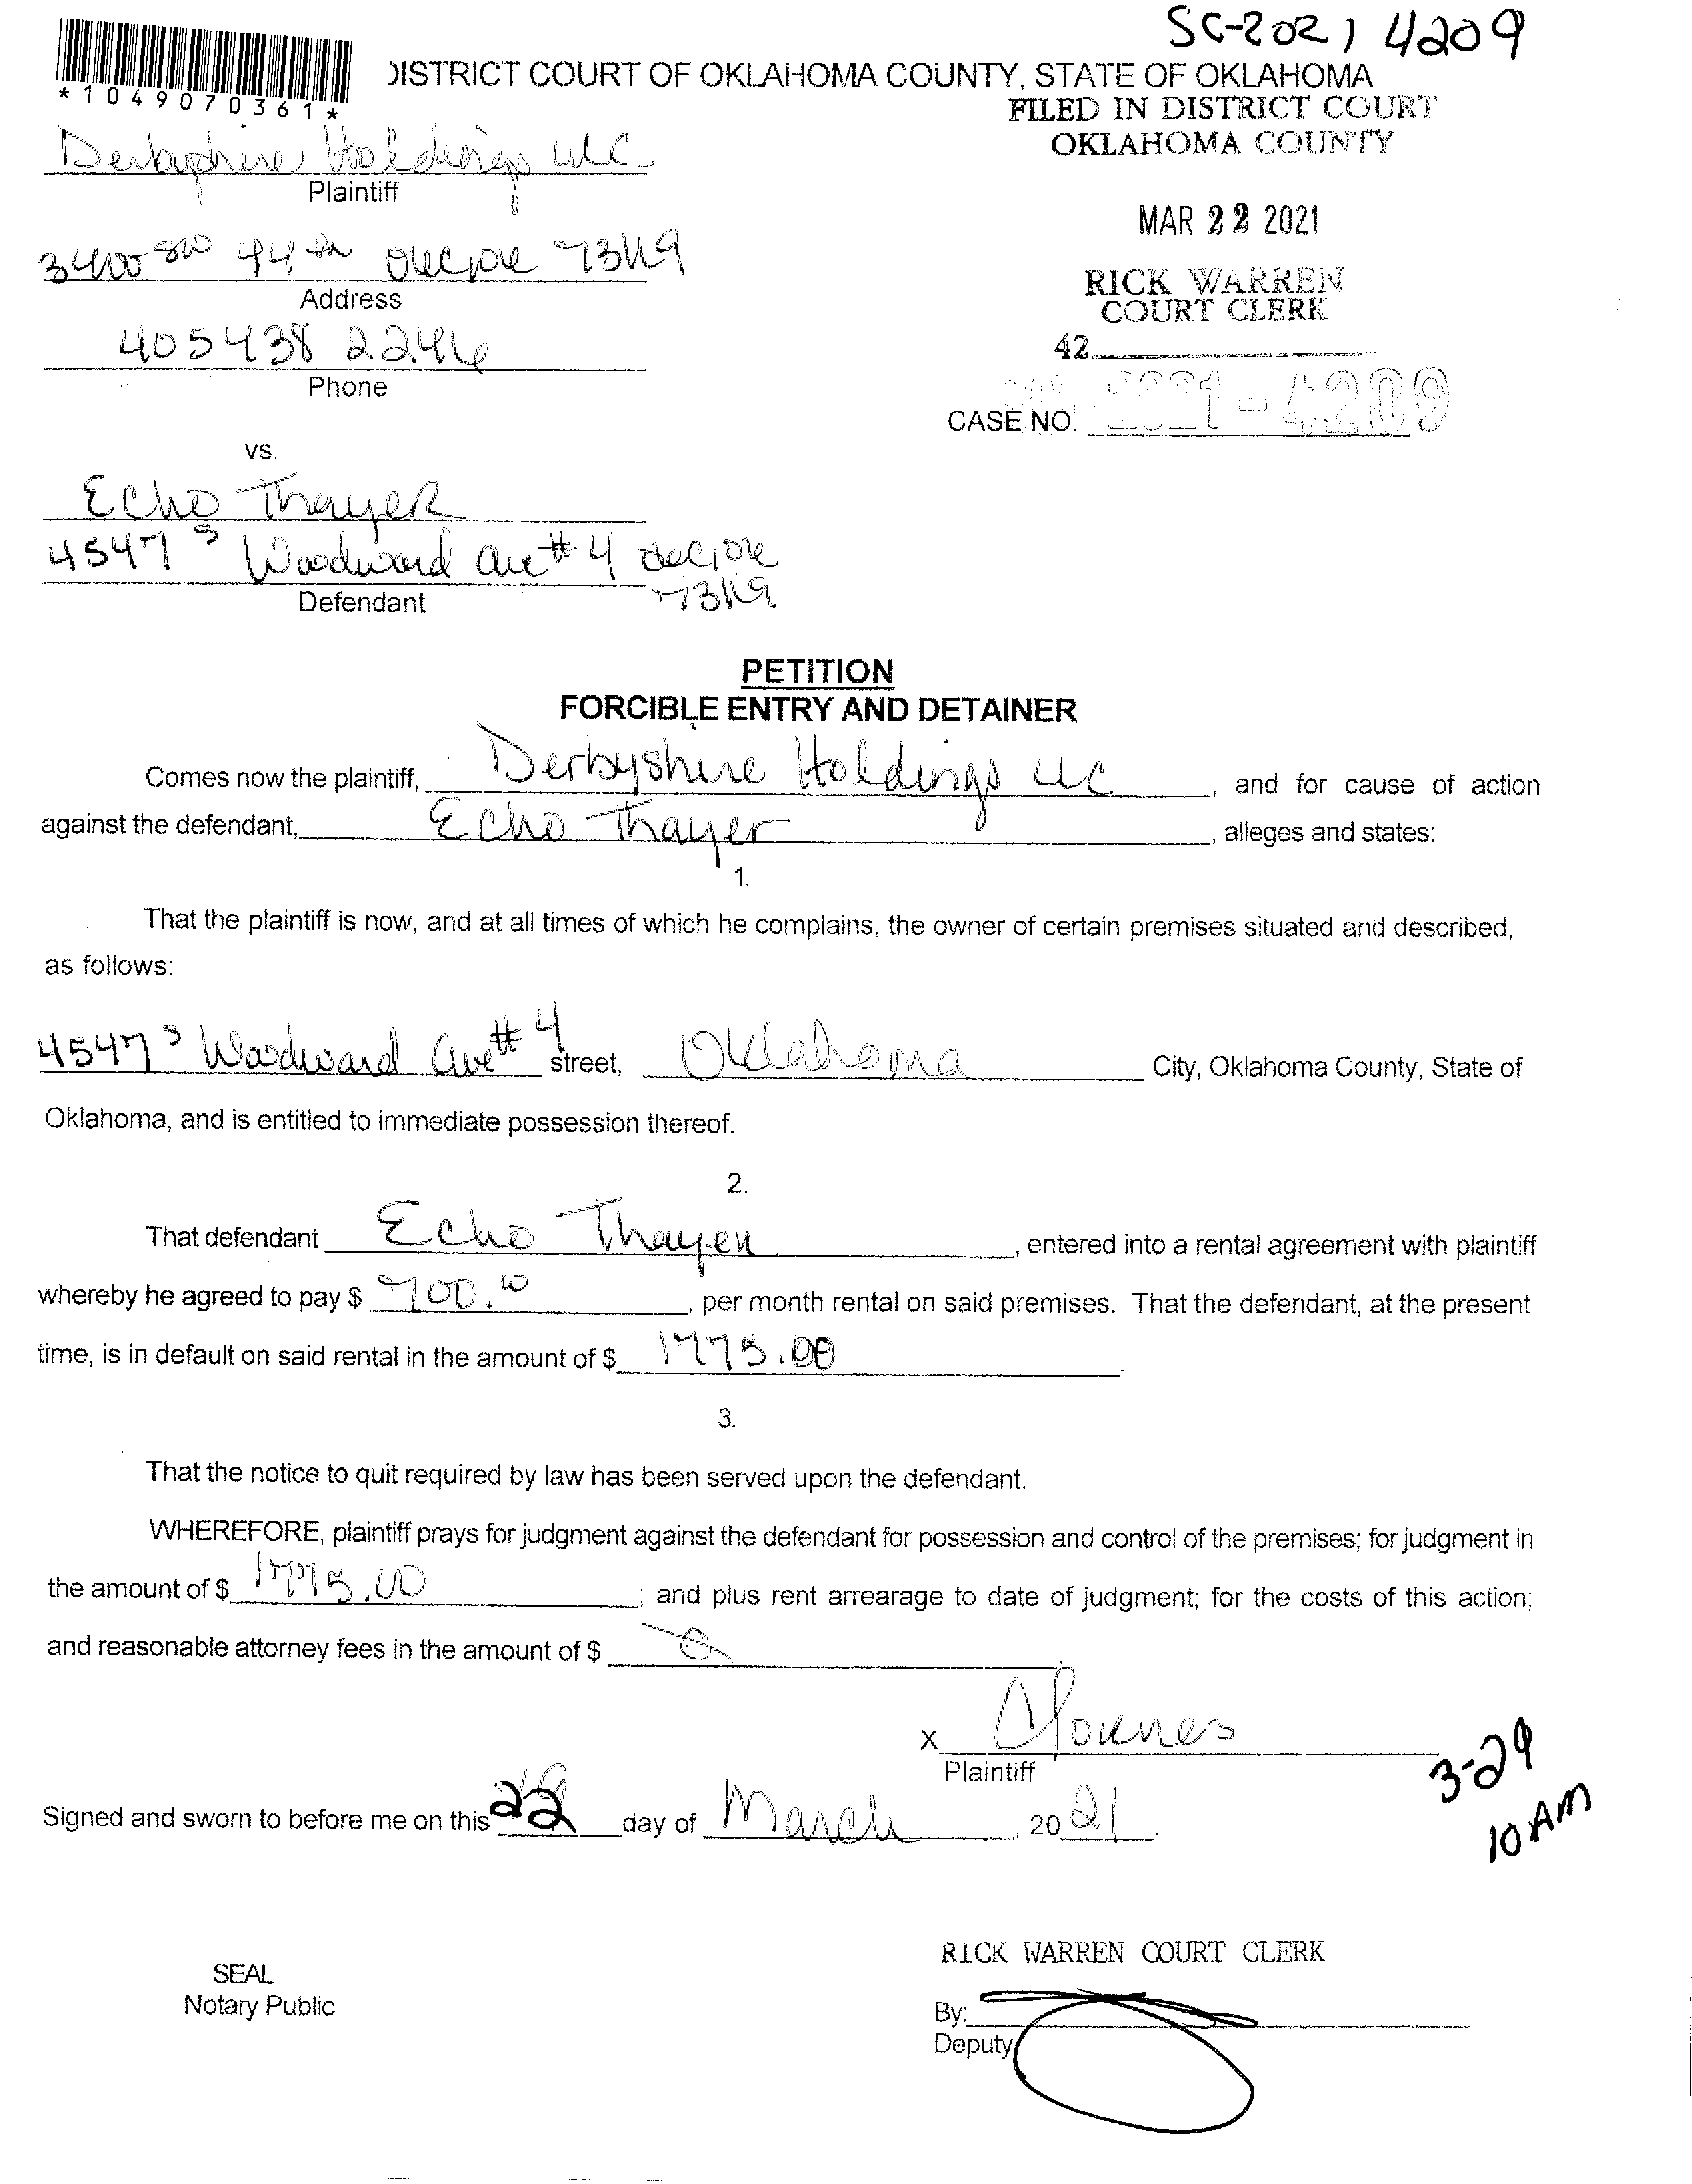 SC-2021 4209
DISTRICT COURT OF OKLAHOMA COUNTY, STATE OF OKLAHOMA
*1049070361*
FILED IN DISTRICT COURT
OKLAHOMA COUNTY
Derbyshire Holdings LLC
Plaintiff
MAR 22 2021
3400 SW 44th 73119
Address
RICK WARREN
COURT CLERK
405 438 2246
Phone
42
CASE NO. 2021-4209
vs.
Echo Thayer
4547 S Woodward Ave #4
73119
Defendant
PETITION
FORCIBLE ENTRY AND DETAINER
Comes now the plaintiff, Derbyshire Holdings LLC, and for cause of action
against the defendant, Echo Thayer, alleges and states:
1.
That the plaintiff is now, and at all times of which he complains, the owner of certain premises situated and described,
as follows:
4547 S Woodward Ave #4 street, Oklahoma City, Oklahoma County, State of
Oklahoma, and is entitled to immediate possession thereof.
2.
That defendant Echo Thayer, entered into a rental agreement with plaintiff
whereby he agreed to pay $ 700.00, per month rental on said premises. That the defendant, at the present
time, is in default on said rental in the amount of $ 1775.00
3.
That the notice to quit required by law has been served upon the defendant.
WHEREFORE, plaintiff prays for judgment against the defendant for possession and control of the premises; for judgment in
the amount of $ 1775.00; and plus rent arrearage to date of judgment; for the costs of this action;
and reasonable attorney fees in the amount of $ 0
X
Plaintiff
3-29
10 AM
Signed and sworn to before me on this 22 day of March, 2021.
RICK WARREN COURT CLERK
SEAL
Notary Public
By:
Deputy